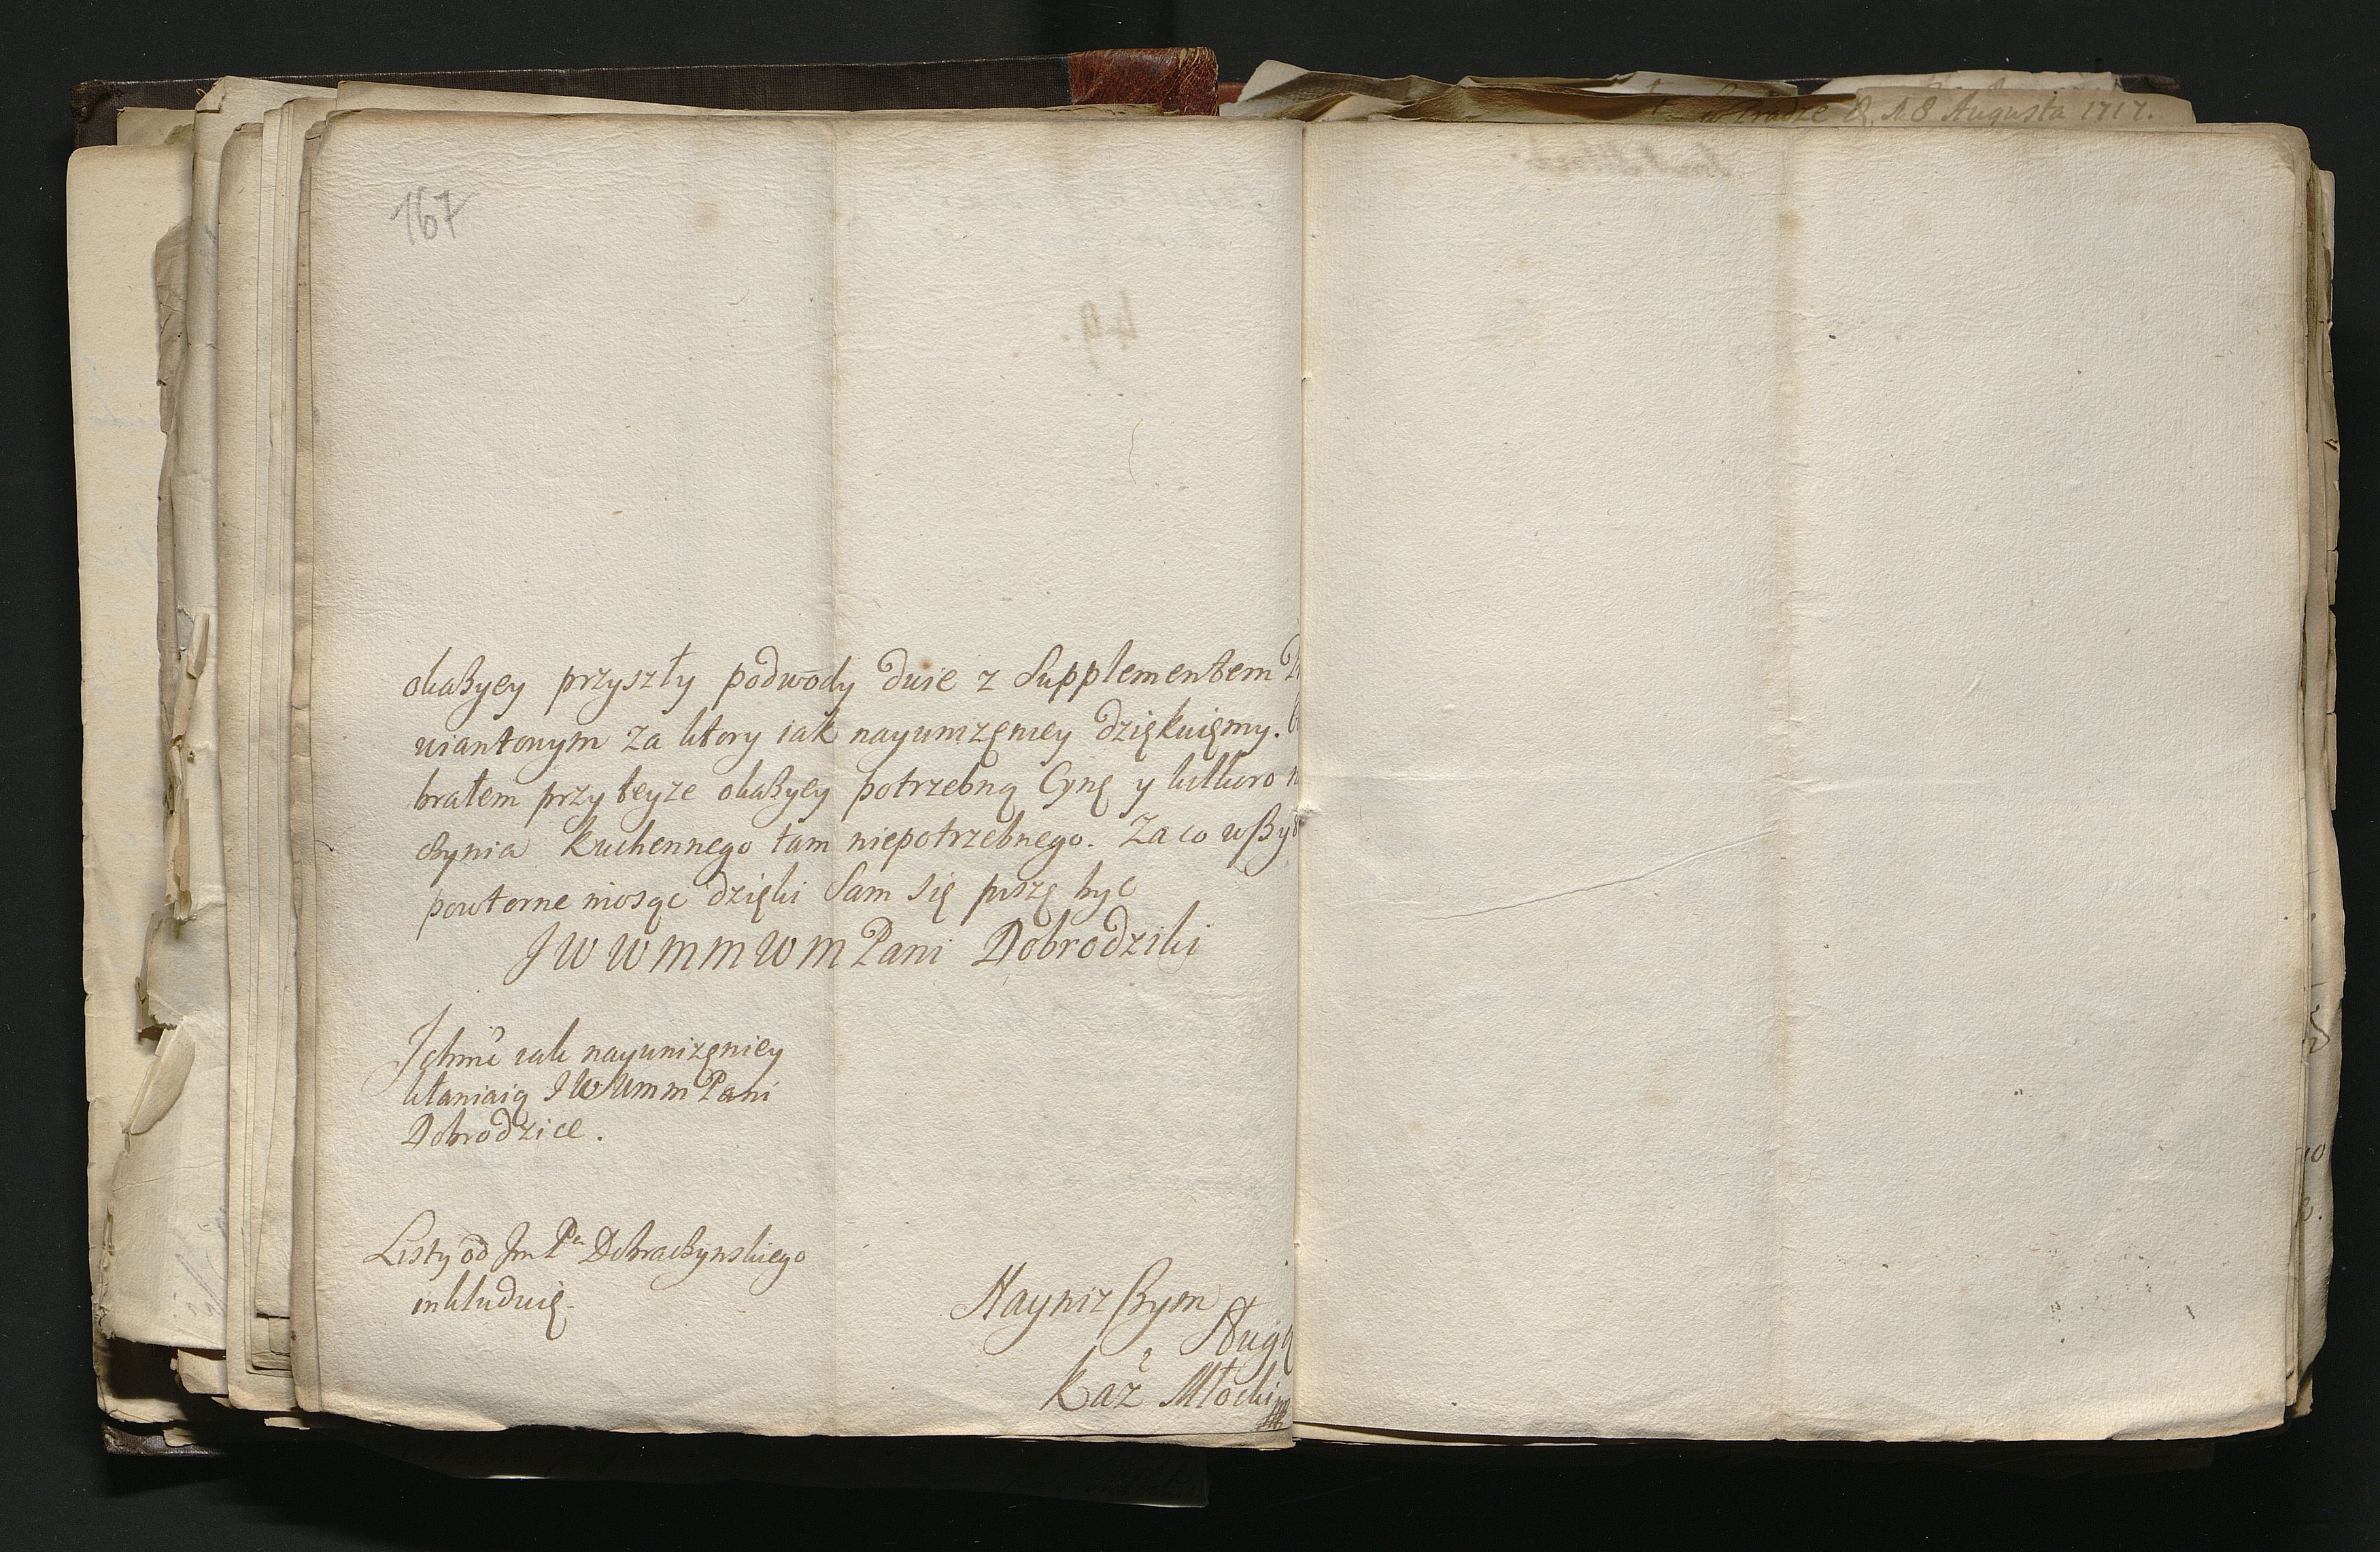 w Pradze D 18 Augusta 1717.
167
okaßyey przyszły podwody dwie z Supplementem
wiantonym za ktory iak nayunizęniey dziękuięmy.
brałem przy teyze okaßyey potrzebną Cynę y kilkoro
czynia kuchennego tam niepotrzebnego. Za co wßy
powtorne niosąc dzięki Sam się piszę byc
J W W M M W M Pani Dobrodziki
Ichmć iak nayunizęniey
kłaniaią J W Wmm Pani
Dobrodzice.
Listy od Jm Pa Dobraczynskiego
inkluduię.
Nayniżßym
Sługą
Kaz Młocki